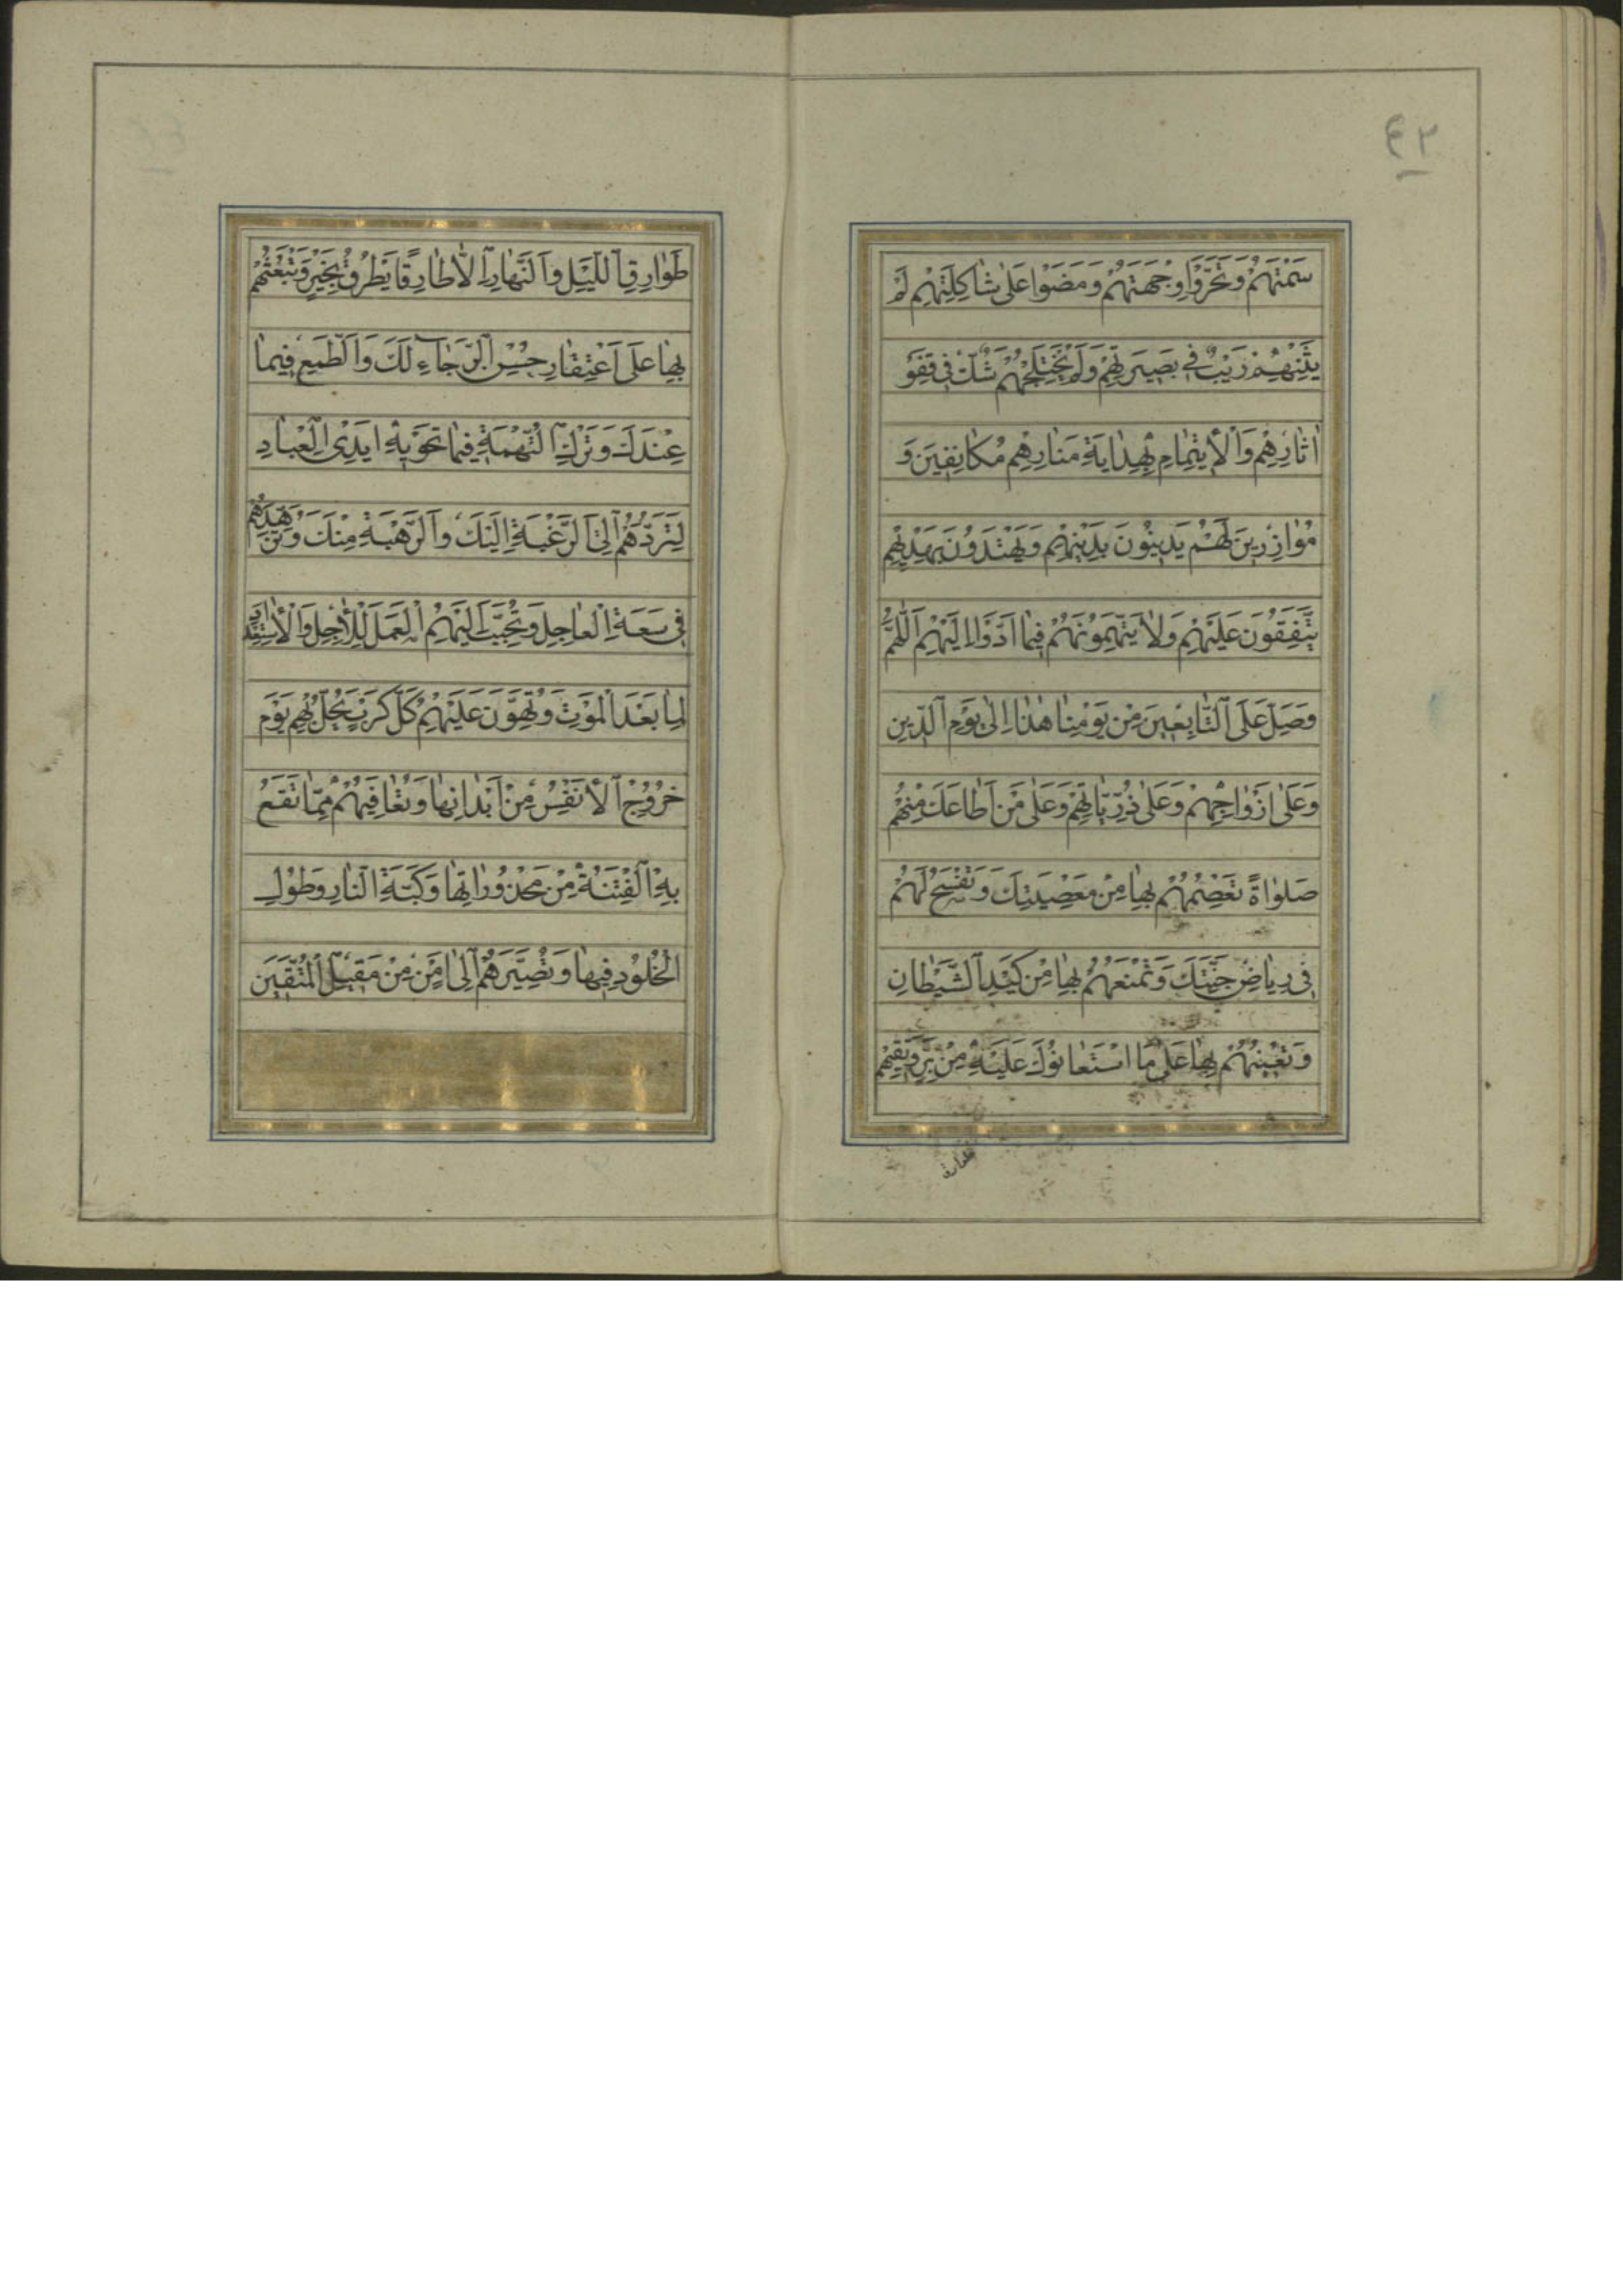 ٤٢
سَمْتَهُمْ وَتَحَرَّوْا وِجْهَتَهُمْ وَمَضَوْا عَلىٰ شاكِلَتِهِمْ لَمْ
يَثْنِهِمْ رَيْبٌ فى بَصيرَتِهِمْ وَلَمْ يَخْتَلِجْهُمْ شَكٌّ فى قَفْوِ
اٰثارِهِمْ وَالْاِيتِمامِ بِهِدايَةِ مَنارِهِمْ مُكانِفينَ وَ
مُوازِرينَ لَهُمْ يَدينُونَ بِدينِهِمْ وَيَهْتَدُونَ بِهَدْيِهِمْ
يَتَّفِقُونَ عَلَيْهِمْ وَلا يَتَّهِمُونَهُمْ فيما اَدَّوْا اِلَيْهِمْ اَللّٰهُمَّ
وَصَلِّ عَلَى التّابِعينَ مِنْ يَوْمِنا هٰذا اِلىٰ يَوْمِ الدّينِ
وَعَلىٰ اَزْواجِهِمْ وَعَلىٰ ذُرِّيّاتِهِمْ وَعَلىٰ مَنْ اَطاعَكَ مِنْهُمْ
صَلواةً تَعْصِمُهُمْ بِها مِنْ مَعْصِيَتِكَ وَتَفْسَحُ لَهُمْ
فى رِياضِ جَنَّتِكَ وَتَمْنَعُهُمْ بِها مِنْ كَيْدِ الشَّيْطانِ
وَتُعينُهُمْ بِها عَلىٰ مَا اسْتَعانُوكَ عَلَيْهِ مِنْ بِرٍّ وَتَقيهِمْ
طَوارِقَ اللَّيْلِ وَالنَّهارِ اِلّا طارِقًا يَطْرُقُ بِخَيْرٍ وَتَبْعَثُهُمْ
بِها عَلَى اعْتِقادِ حُسْنِ الرَّجاءِ لَكَ وَالطَّمَعِ فيما
عِنْدَكَ وَتَرْكِ التُّهْمَةِ فيما تَحْويهِ اَيْدِى الْعِبادِ
لِتَرُدَّهُمْ اِلَى الرَّغْبَةِ اِلَيْكَ وَالرَّهْبَةِ مِنْكَ وَتُزَهِّدَهُمْ
فى سَعَةِ الْعاجِلِ وَتُحَبِّبَ اِلَيْهِمُ الْعَمَلَ لِلْاٰجِلِ وَالْاِسْتِعْدادَ
لِما بَعْدَ الْمَوْتِ وَتُهَوِّنَ عَلَيْهِمْ كُلَّ كَرْبٍ يَحُلُّ بِهِمْ يَوْمَ
خُرُوجِ الْاَنْفُسِ مِنْ اَبْدانِها وَتُعافِيَهُمْ مِمّا تَقَعُ
بِهِ الْفِتْنَةُ مِنْ مَحْذُوراتِها وَكَبَّةِ النّارِ وَطُولِ
الْخُلُودِ فيها وَتُصَيِّرَهُمْ اِلىٰ اَمْنٍ مِنْ مَقيلِ الْمُتَّقينَ